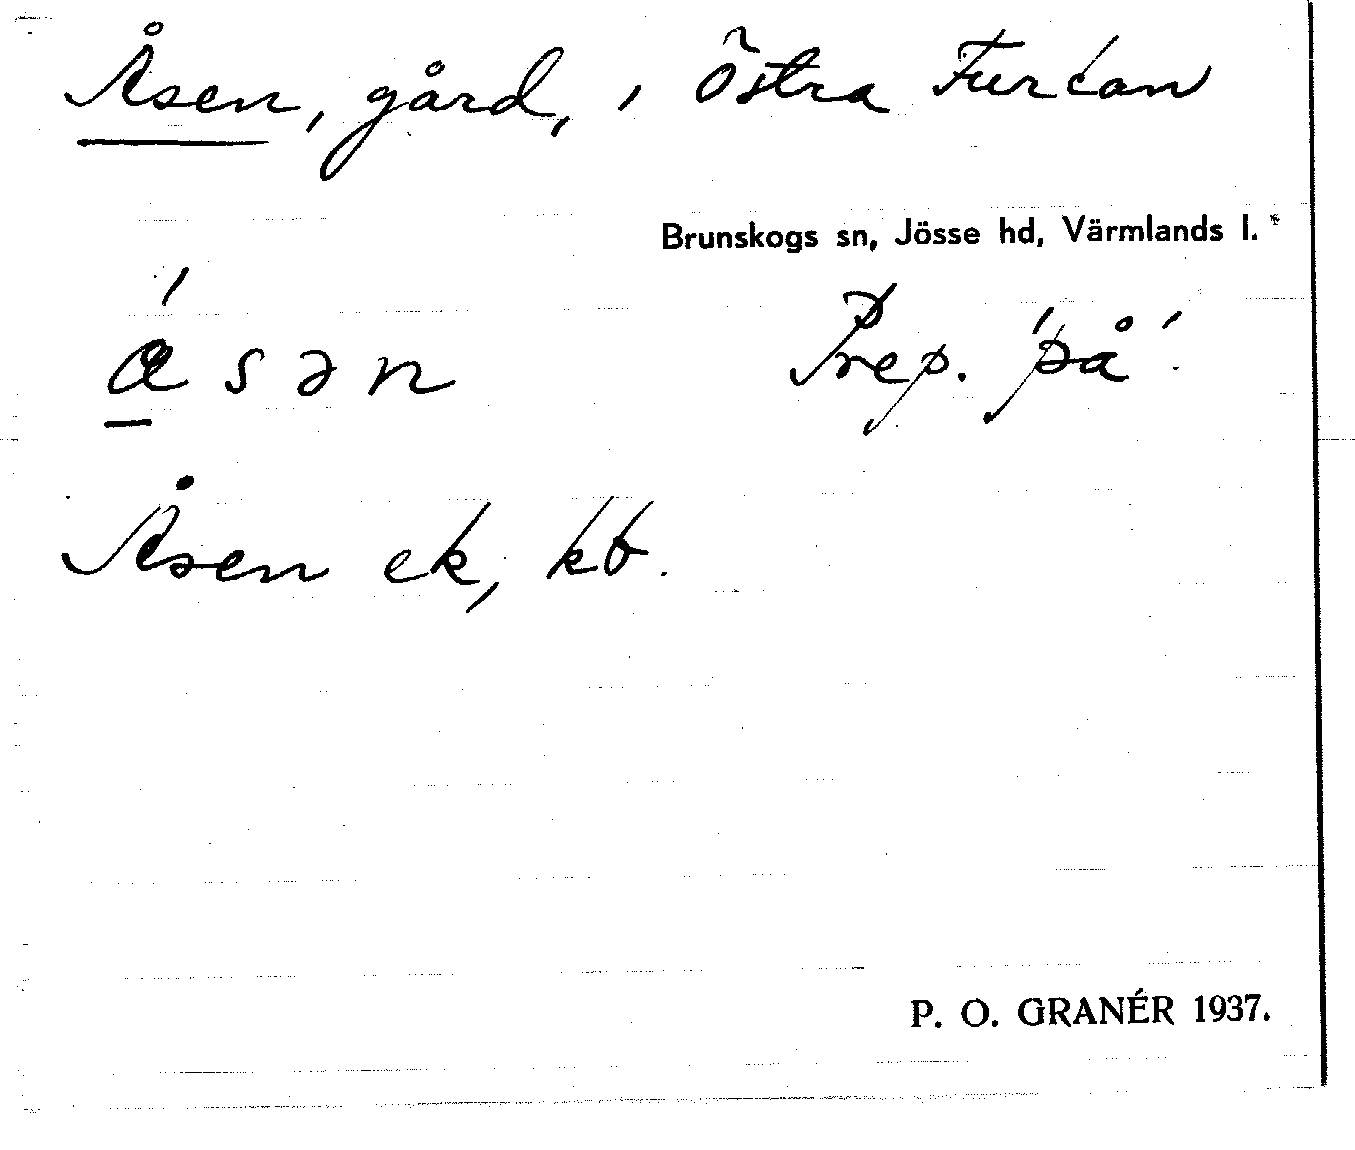 Åsen, gård, i Östra Furtan
Brunskogs sn, Jösse hd, Värmlands l.
Prep. 'på'.
Åsen ek, kb.
P. O. GRANÉR 1937.